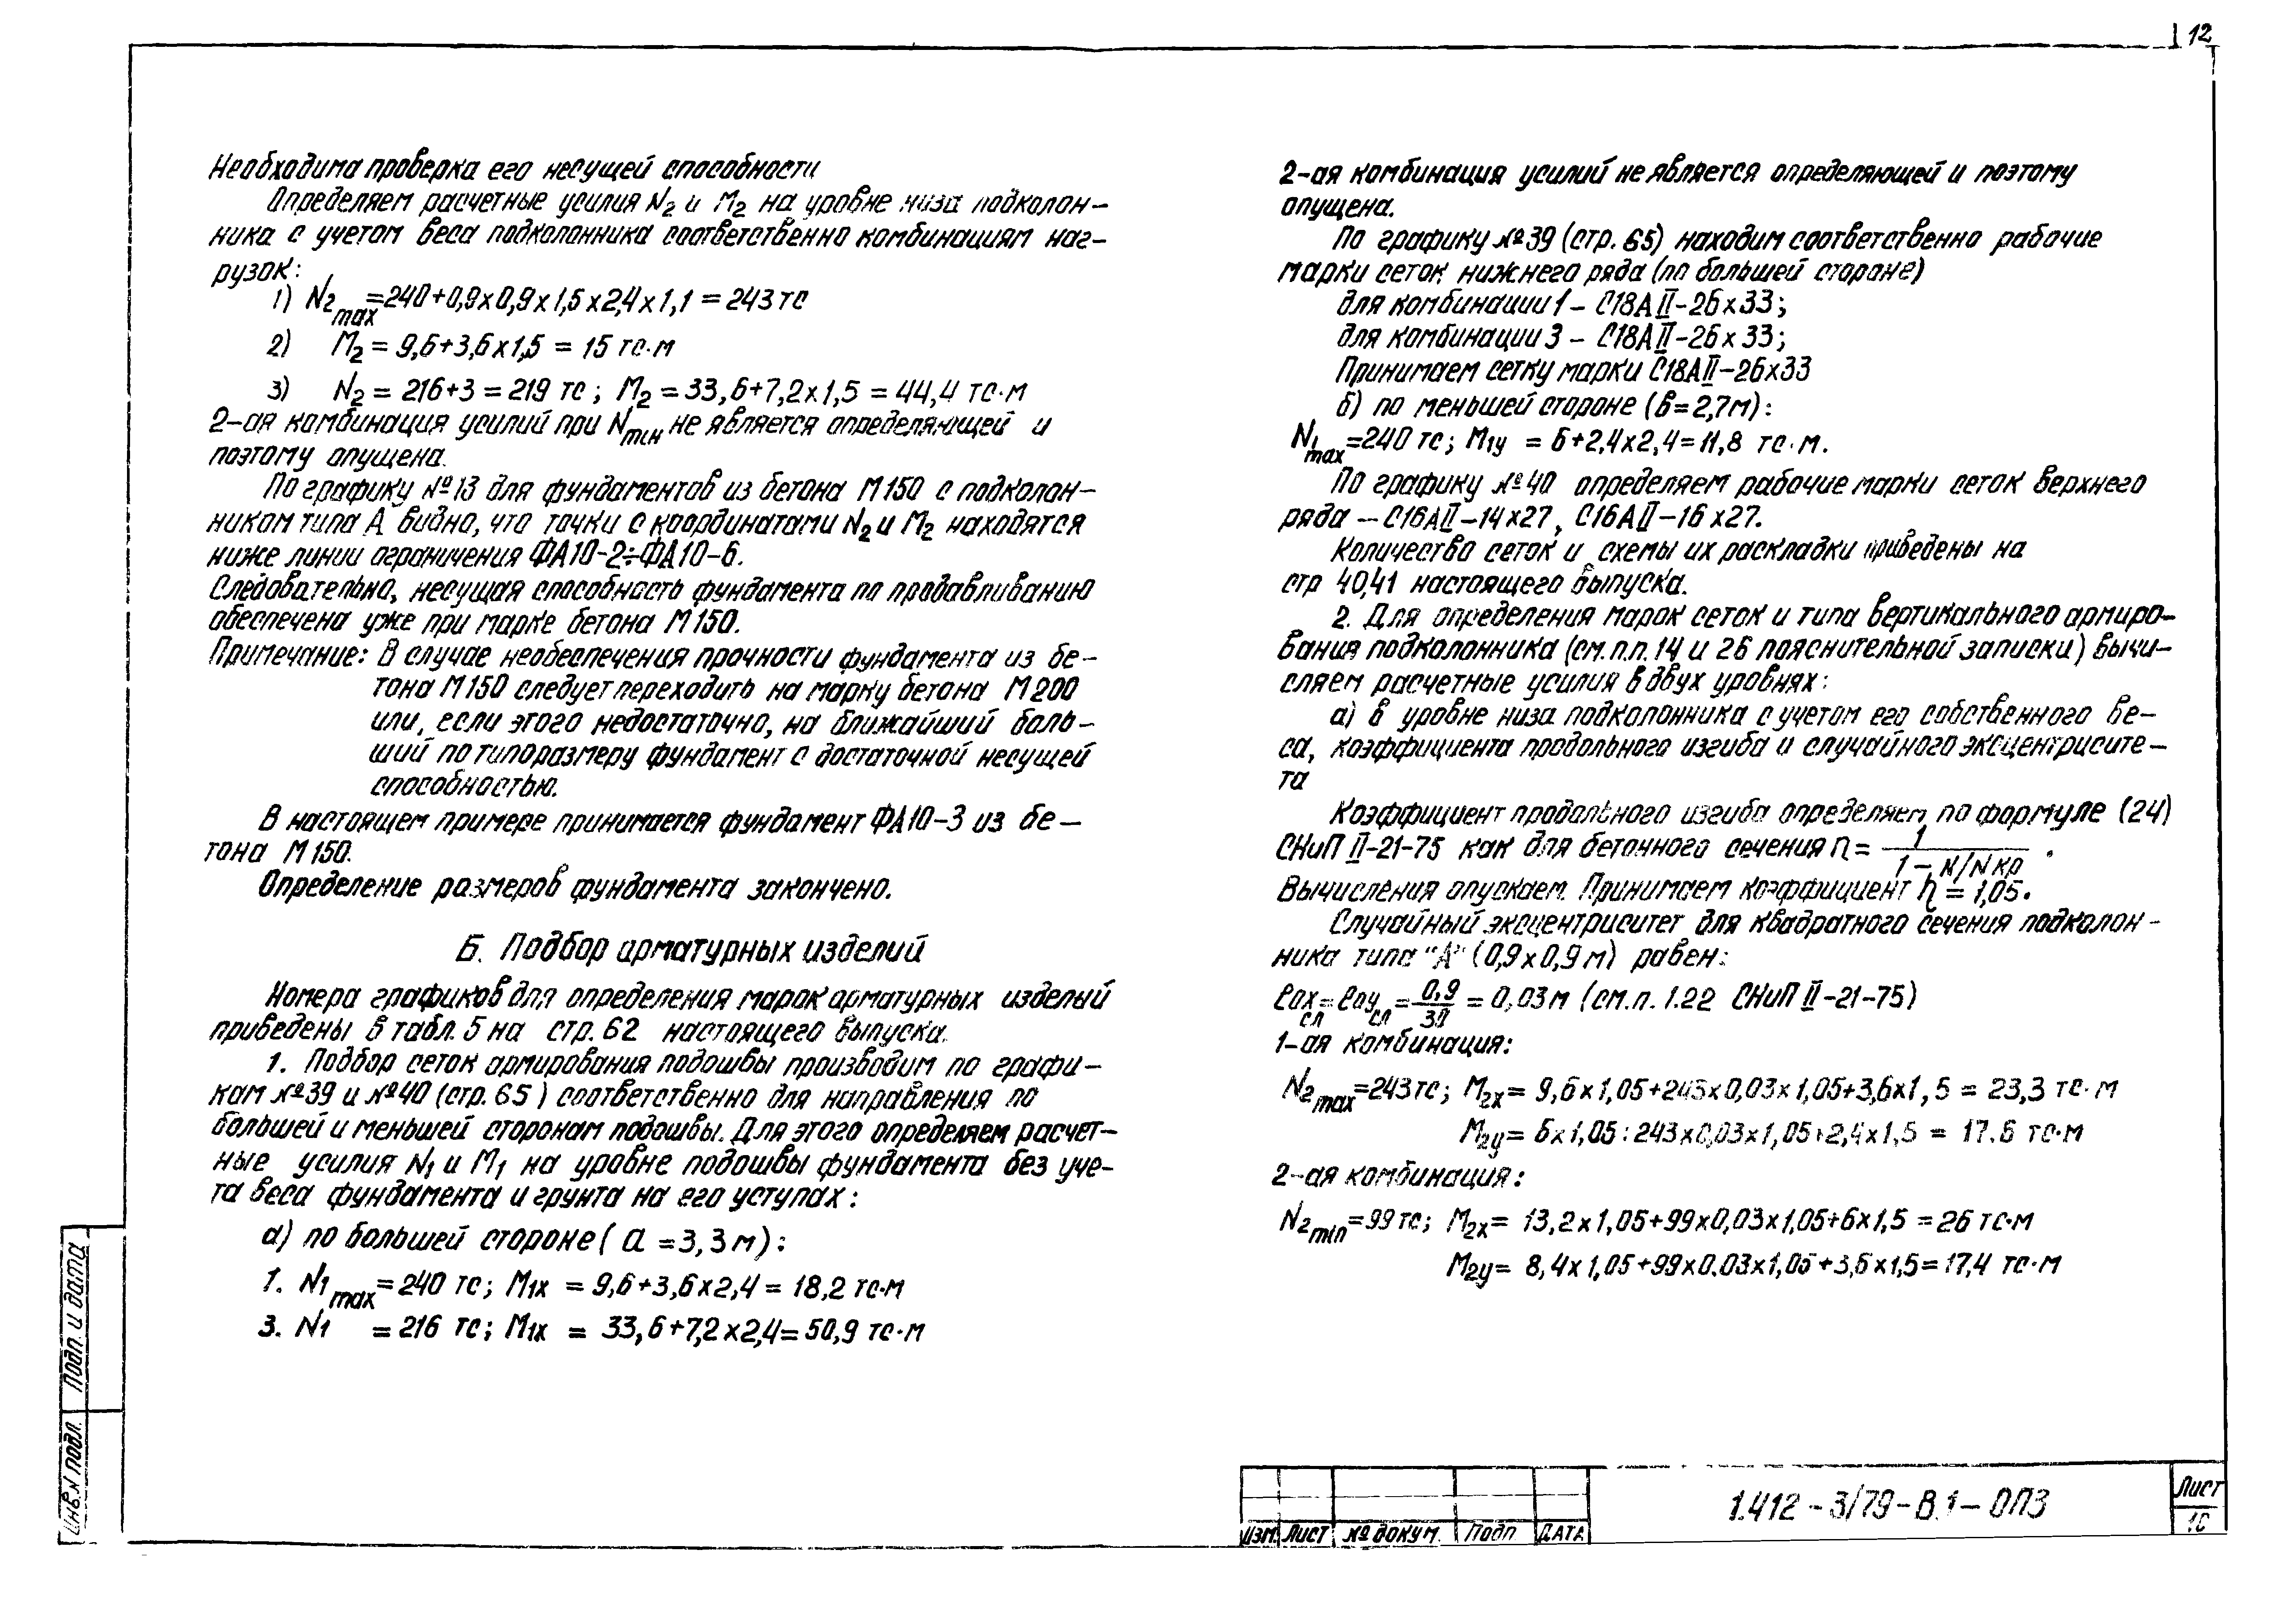 12
Необходима проверка его несущей способности
Определяем расчетные усилия N₂ и M₂ на уровне низа подколон-
ника с учетом веса подколонника соответственно комбинациям наг-
рузок:
1) N₂max=240+0,9х0,9х1,5х2,4х1,1 = 243 тс
2) M₂ = 9,6+3,6х1,5 = 15 тс·м
3) N₂ = 216+3 = 219 тс; M₂ = 33,6+7,2х1,5 = 44,4 тс·м
2-ая комбинация усилий при Nmin не является определяющей и
поэтому опущена.
По графику №13 для фундаментов из бетона М150 с подколон-
ником типа А видно, что точки с координатами N₂ и M₂ находятся
ниже линии ограничения ФА10-2÷ФА10-6.
Следовательно, несущая способность фундамента по продавливанию
обеспечена уже при марке бетона М150.
Примечание: В случае необеспечения прочности фундамента из бе-
тона М150 следует переходить на марку бетона М200
или, если этого недостаточно, на ближайший боль-
ший по типоразмеру фундамент с достаточной несущей
способностью.
В настоящем примере принимается фундамент ФА10-3 из бе-
тона М150.
Определение размеров фундамента закончено.
Б. Подбор арматурных изделий
Номера графиков для определения марок арматурных изделий
приведены в табл. 5 на стр. 62 настоящего выпуска.
1. Подбор сеток армирования подошвы производим по графи-
кам №39 и №40 (стр. 65) соответственно для направления по
большей и меньшей сторонам подошвы. Для этого определяем расчет-
ные усилия N₁ и M₁ на уровне подошвы фундамента без уче-
та веса фундамента и грунта на его уступах:
а) по большей стороне (а =3,3м):
1. N₁max=240 тс; M₁х = 9,6+3,6х2,4 = 18,2 тс·м
3. N₁ = 216 тс; M₁х = 33,6+7,2х2,4= 50,9 тс·м
2-ая комбинация усилий не является определяющей и поэтому
опущена.
По графику №39 (стр. 65) находим соответственно рабочие
марки сеток нижнего ряда (по большей стороне)
для комбинации 1 - С18АII-26х33;
для комбинации 3 - С18АII-26х33;
Принимаем сетку марки С18АII-26х33
б) по меньшей стороне (в=2,7м):
N₁max=240 тс; M₁у = 6+2,4х2,4=11,8 тс·м.
По графику №40 определяем рабочие марки сеток верхнего
ряда - С16АII-14х27, С16АII-16х27.
Количество сеток и схемы их раскладки приведены на
стр 40,41 настоящего выпуска.
2. Для определения марок сеток и типа вертикального армиро-
вания подколонника (см. п.п. 14 и 26 пояснительной записки) вычи-
сляем расчетные усилия в двух уровнях:
а) в уровне низа подколонника с учетом его собственного ве-
са, коэффициента продольного изгиба и случайного эксцентрисите-
та
Коэффициент продольного изгиба определяем по формуле (24)
СНиП II-21-75 как для бетонного сечения η = 1/(1 - N/Nкр).
Вычисления опускаем. Принимаем коэффициент η = 1,05.
Случайный эксцентриситет для квадратного сечения подколон-
ника типа "А" (0,9х0,9м) равен:
eох сл = eоу сл = 0,9/30 = 0,03м (см. п. 1.22 СНиП II-21-75)
1-ая комбинация:
N₂max=243тс; M₂х= 9,6х1,05+243х0,03х1,05+3,6х1,5 = 23,3 тс·м
M₂у= 6х1,05+243х0,03х1,05+2,4х1,5 = 17.6 тс·м
2-ая комбинация:
N₂min=99тс; M₂х= 13,2х1,05+99х0,03х1,05+6х1,5 =26 тс·м
M₂у= 8,4х1,05+99х0.03х1,05+3,6х1,5=17,4 тс·м
Инв.№ подл. Подп. и дата
Изм. Лист № докум. Подп Дата
1.412-3/79-В.1-ОПЗ
Лист
10